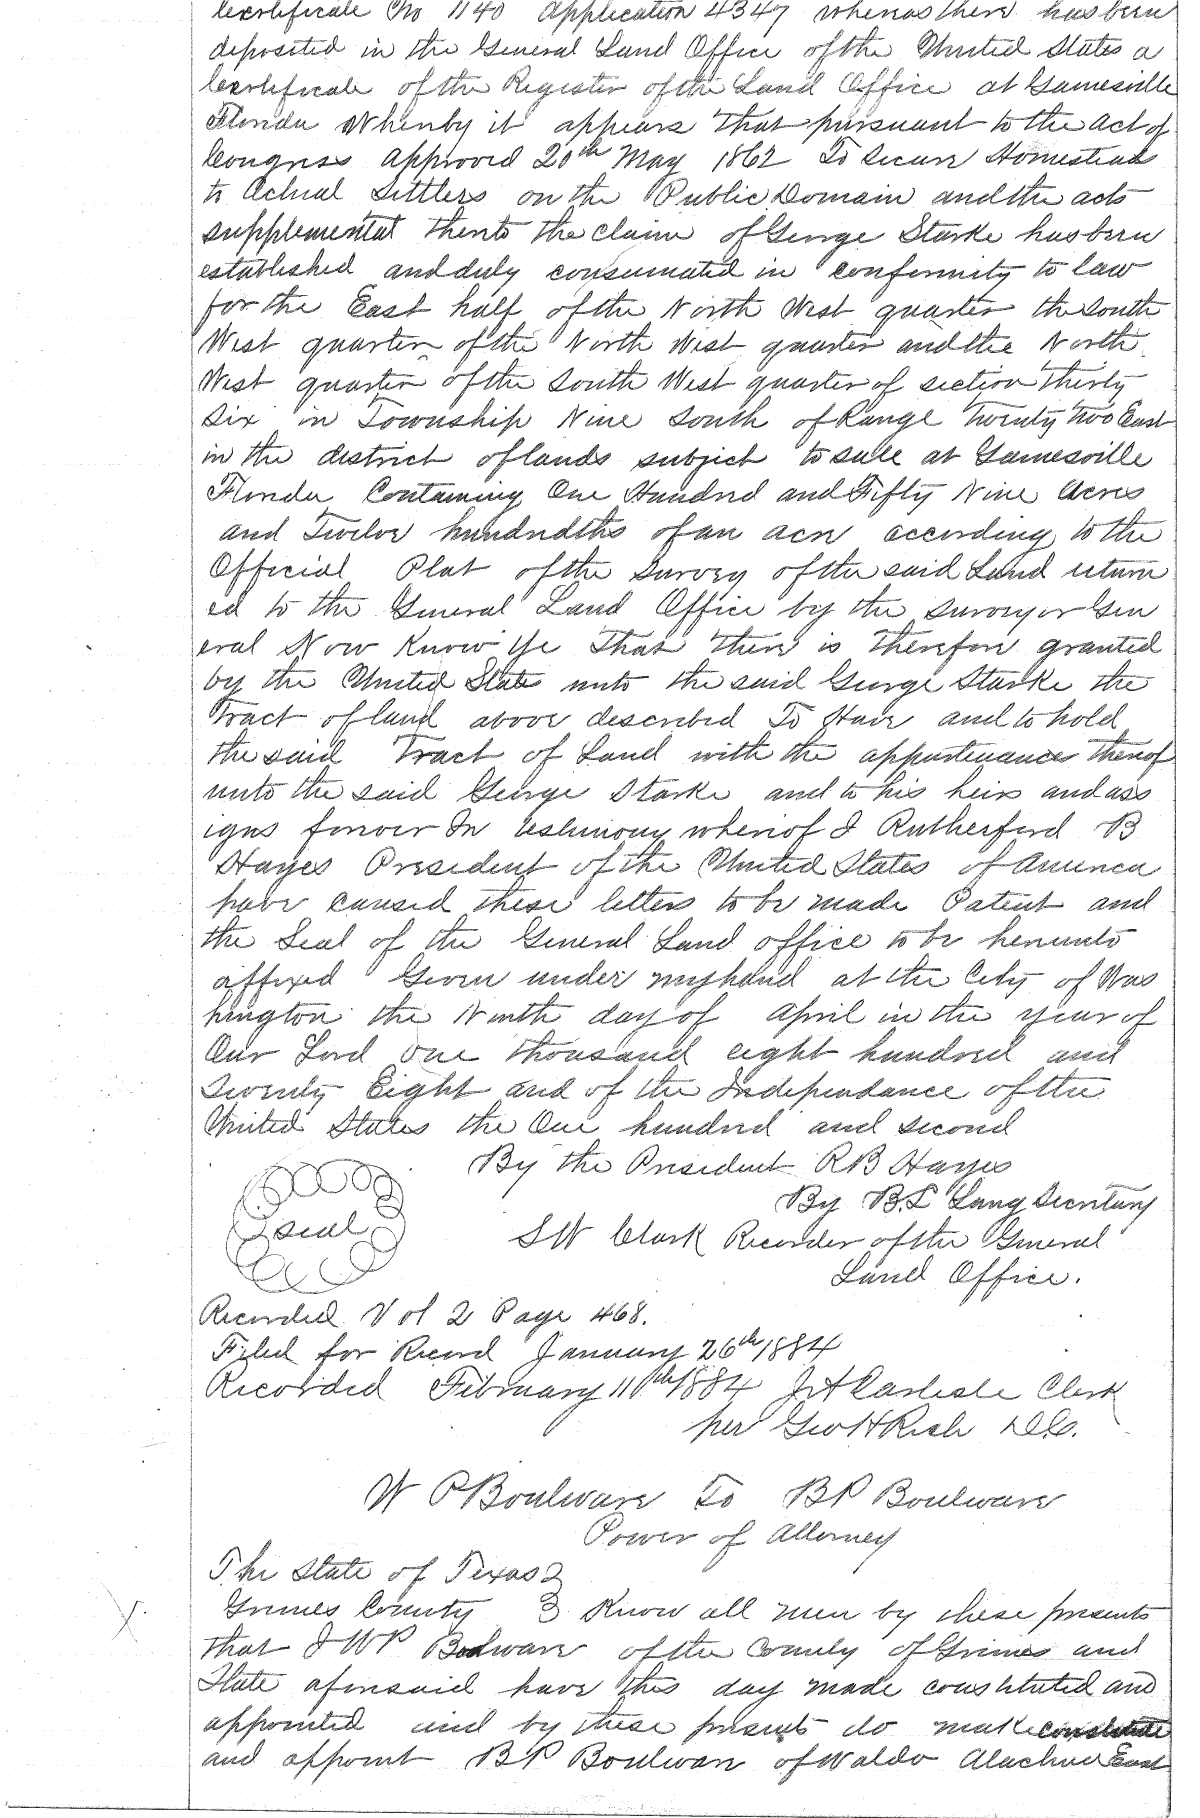 Certificate No 1140 Application 4347 whereas there has been
deposited in the General Land Office of the United States a
Certificate of the Register of the Land Office at Gainesville
Florida Whereby it appears that pursuant to the act of
Congress approved 20th May 1862 To Secure Homesteads
to Actual Settlers on the Public Domain and the acts
supplemental thereto the claim of George Starke has been
established and duly consumated in conformity to law
for the East half of the North West quarter the South
West quarter of the North West quarter and the North
West quarter of the South West quarter of section thirty
six in Township Nine South of Range Twenty two East
in the district of lands subject to sale at Gainesville
Florida Containing One Hundred and Fifty Nine Acres
and Twelve hundredths of an acre according to the
Official Plat of the Survey of the said Land return
ed to the General Land Office by the surveyor Gen
eral Now Know Ye That there is therefore granted
by the United States unto the said George Starke the
Tract of land above described To Have and to hold
the said Tract of Land with the appurtenances thereof
unto the said George Starke and to his heirs and ass
igns forever In testimony whereof I Rutherford B
Hayes President of the United States of America
have caused these letters to be made Patent and
the Seal of the General Land office to be hereunto
affixed Given under my hand at the City of Was
hington the Ninth day of April in the year of
Our Lord One thousand eight hundred and
Seventy Eight and of the Independance of the
United States the One hundred and second
By the President R B Hayes
By B.L Lang Secretary
Seal S W Clark Recorder of the General
Land Office.
Recorded Vol 2 Page 468.
Filed for Record January 26th 1884
Recorded February 11th 1884 J A Carlisle Clerk
per Geo H Rich D.C.
W P Boulware To B P Boulware
Power of Attorney
The State of Texas
Grimes County Know all men by these presents
that I W P Boulware of the County of Grimes and
State aforesaid have this day made constituted and
appointed and by these presents do make constitute
and appoint B P Boulware of Waldo Alachua East